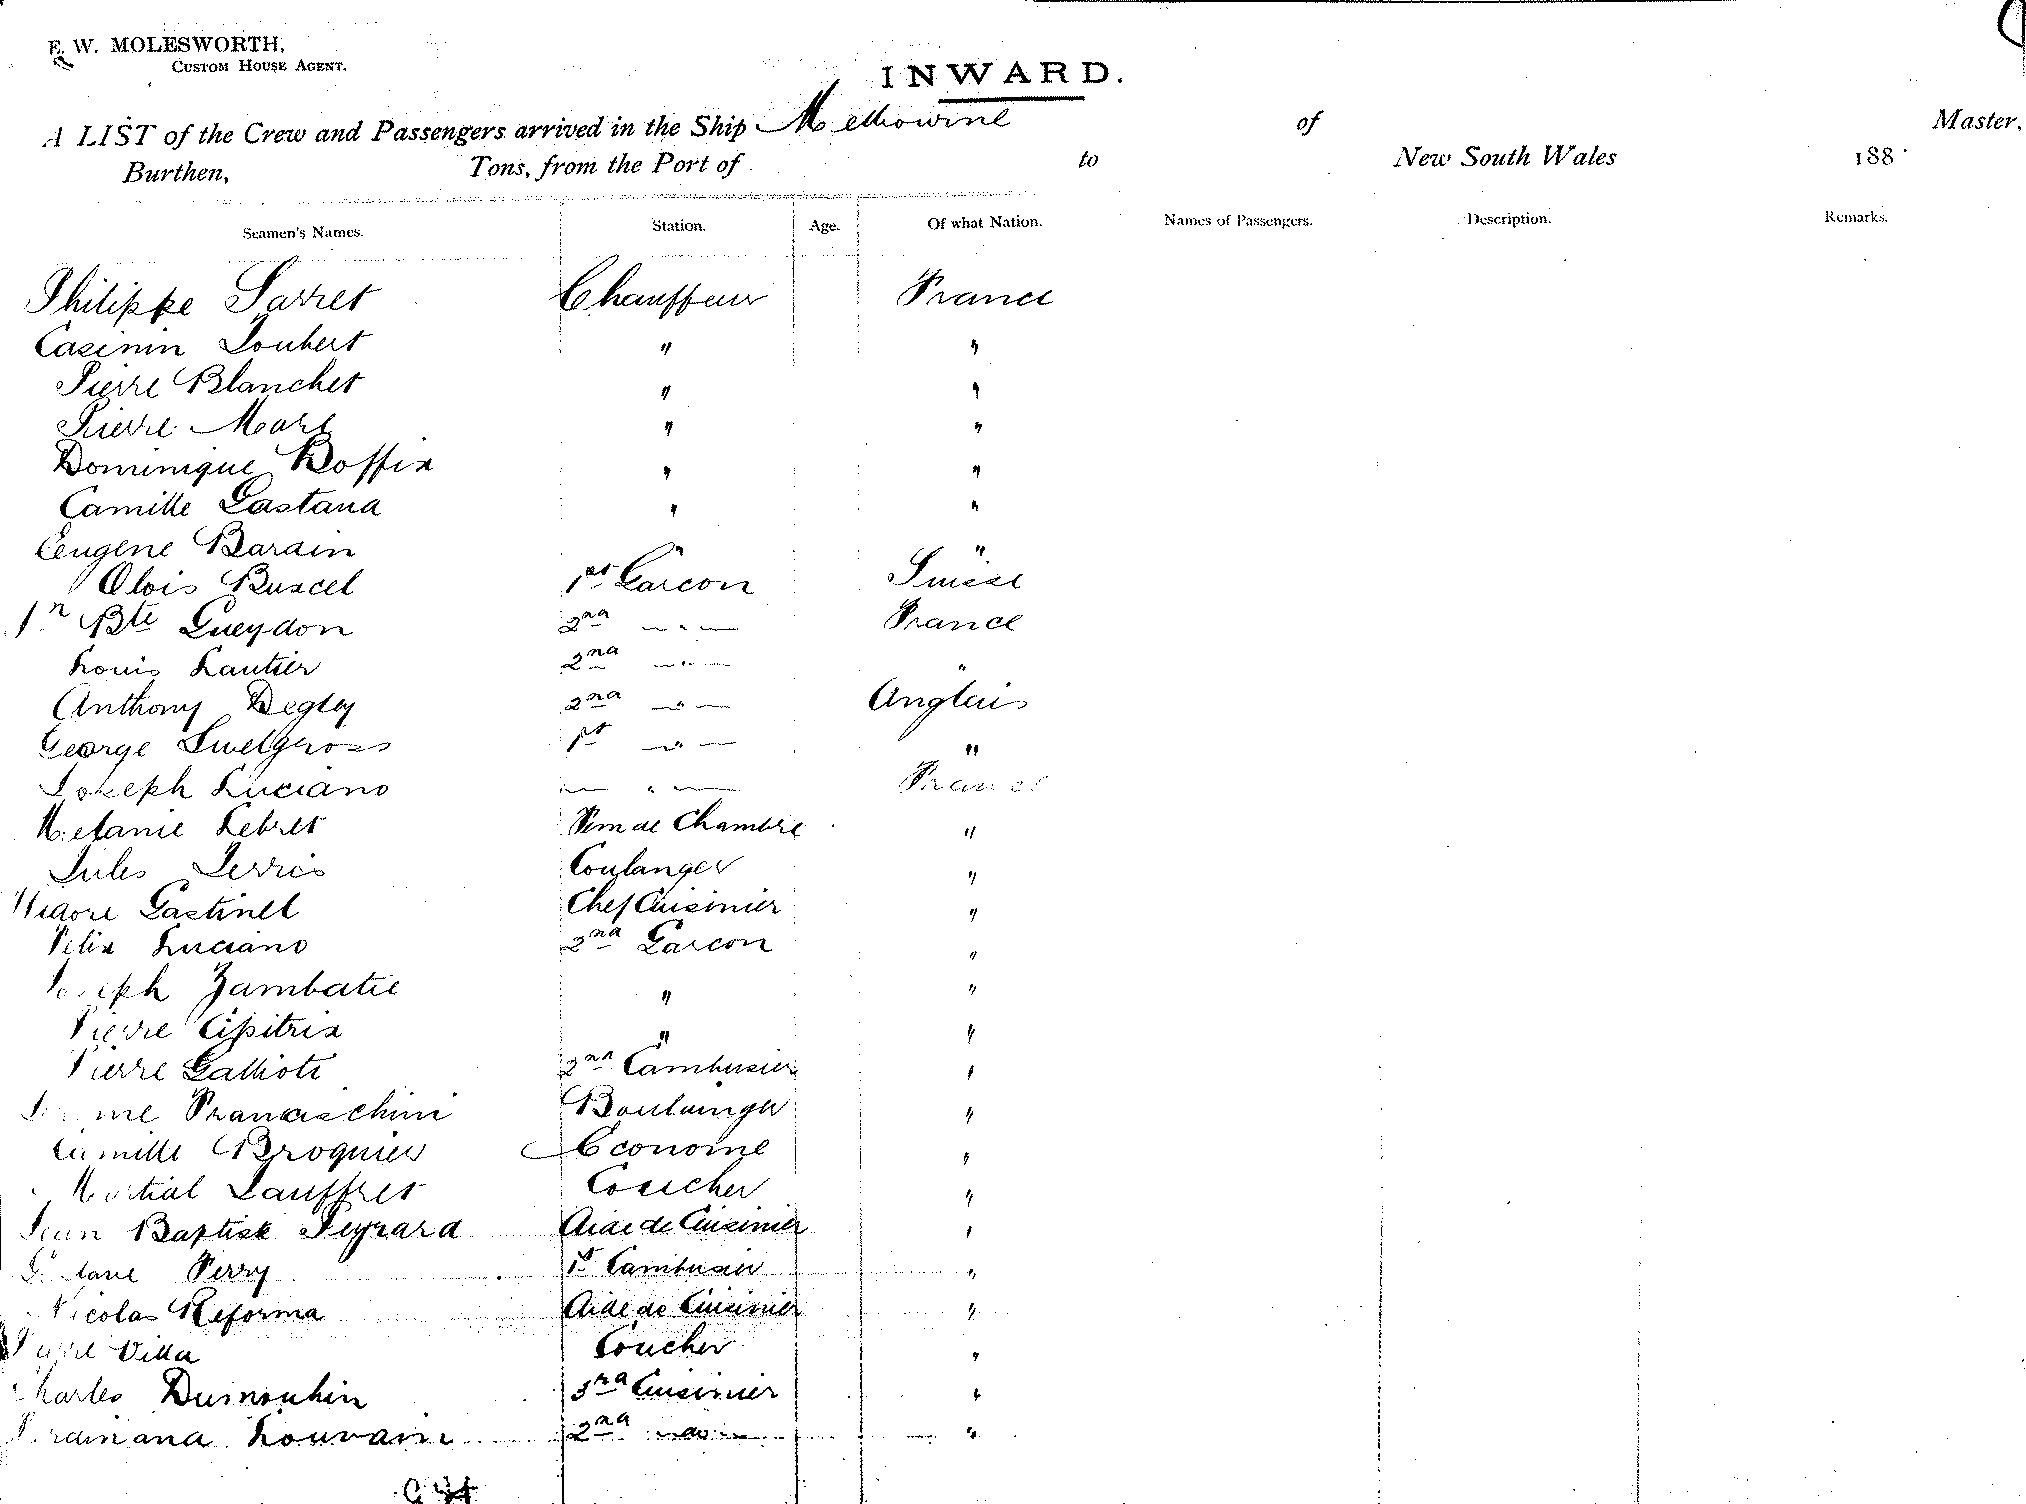 E. W. MOLESWORTH,
CUSTOM HOUSE AGENT.
INWARD.
A LIST of the Crew and Passengers arrived in the Ship Melbourne of Master,
Burthen, Tons, from the Port of to New South Wales 188
Seamen's Names. Station. Age. Of what Nation. Names of Passengers. Description. Remarks.
Philippe Sarret Chauffeur France
Casimin Joubert " "
Pierre Blanchet " "
Pierre " "
Dominique Boffix " "
Camille Gastana " "
Eugène Bardin " "
Alois 1st Garcon Suisse
Jn Bte Gueydon 2nd — " — France
Louis Lautier 2nd — " — "
Anthony Degley 2nd — " — Anglais
George 1st — " — "
Joseph Luciano — " — France
Melanie Lebret Fem de Chambre "
Jules Coulanger "
Isidore Gastinel Chef Cuisinier "
Felix Luciano 2nd Garcon "
Joseph Zambatie " "
Pierre Cipitria " "
Pierre 2nd Cambusier "
Franceschini Boulanger "
Camille Broquier Econome "
Martial Lauffret Coucher "
Jean Baptiste Peyrard Aide de Cuisinier "
Perry 1st Cambusier "
Nicolas Reforma Aide de Cuisinier "
Villa Coucher "
Charles Dumoulin 3rd Cuisinier "
Louvain 2nd — do — "